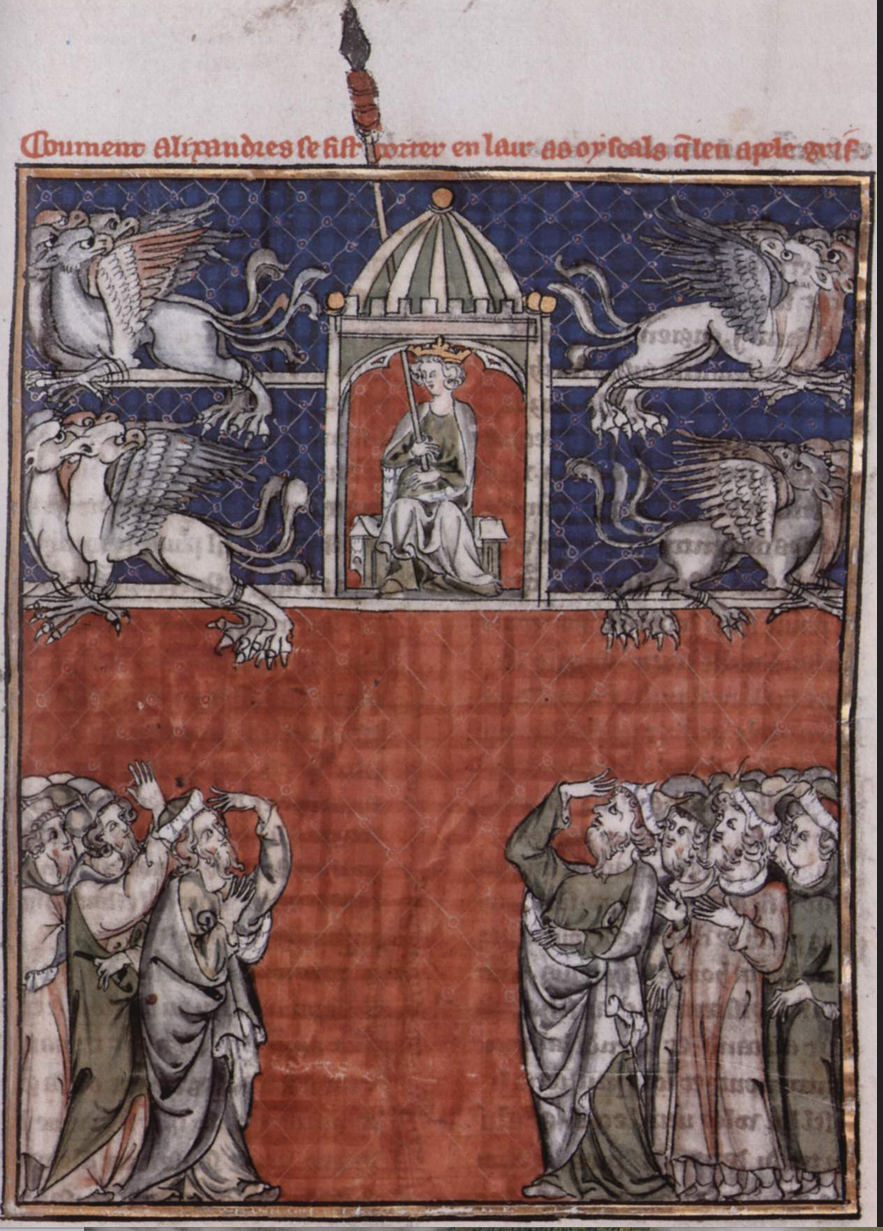 Coument Alixandres se fist porter en lair as oyseals q̃ len apele grif.